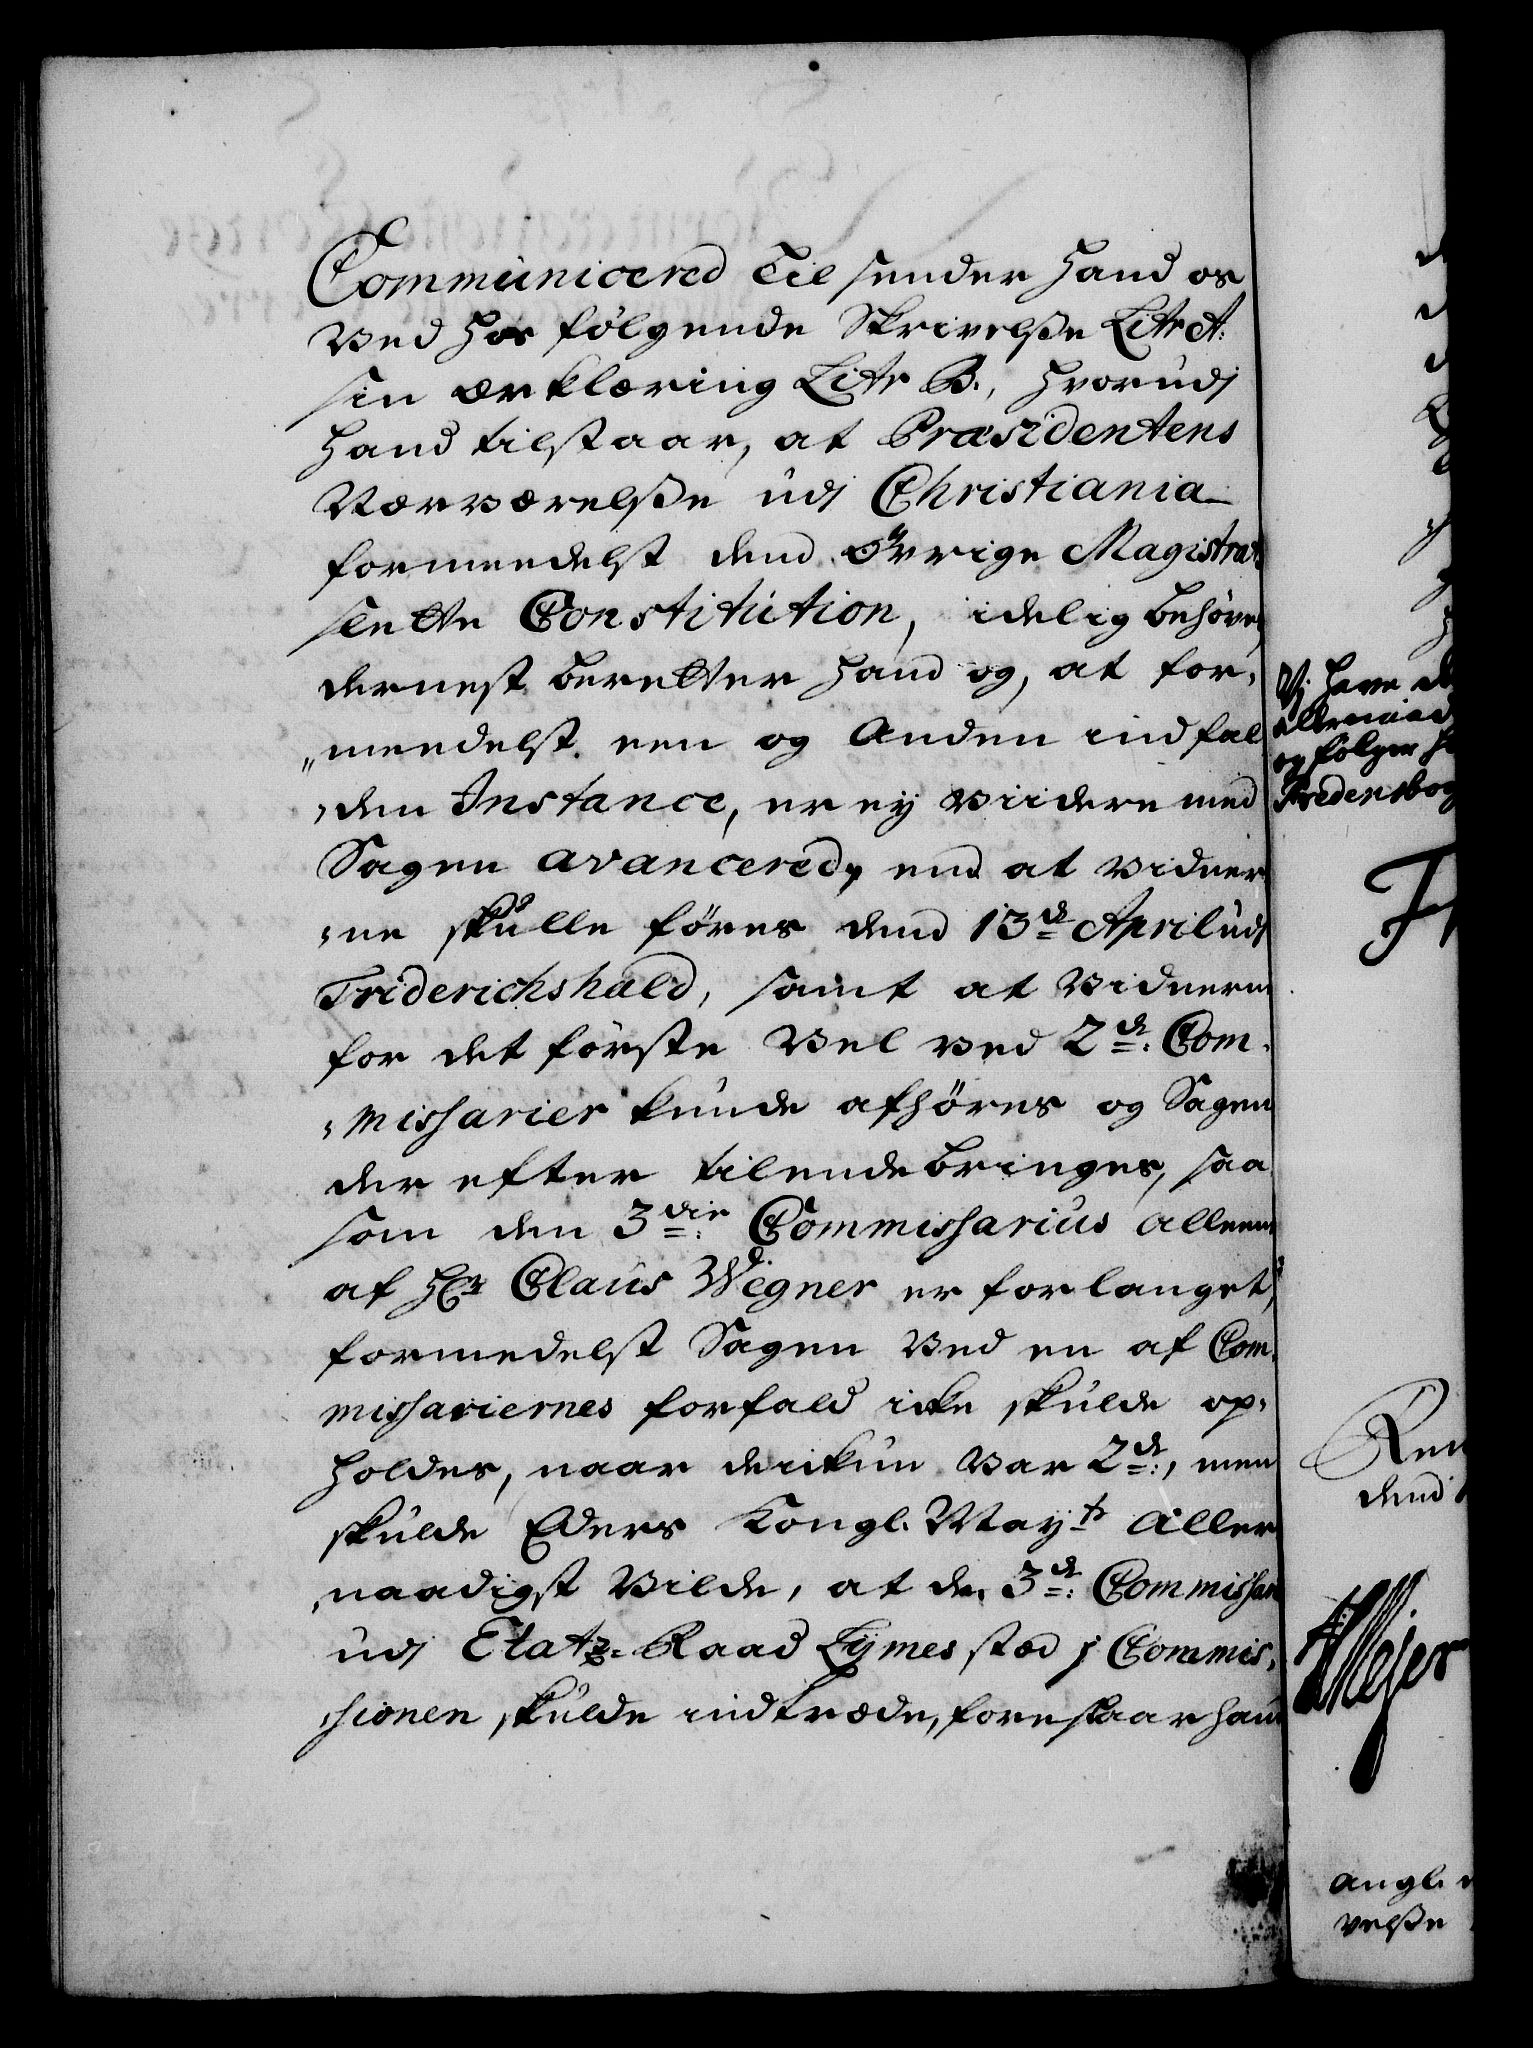 Communicered til sender hand os
Ved hos følgende Skrivelsse Litr A:
sin Erklæring Litr B., hvorudj
hand tilstaar, at Præsidentens
Nærværelsse udj Christiania
formeedelst dend øvrige Magistrat
slette Constitution, idelig behøves
dernest beretter hand og, at for,
„meedelst een og anden indfal
„den Instance, er ej viidere med
Sagen avancered, end at vidner
„ne skulle føres dend 13de April udj
Friderichshald, samt at Vidnerne
for det første Vel ved 2de: Com,
„missarier kunde afhøres og Sagen
der efter tilendebringes, saa
som den 3die: Commissarius alleene
af Hr Claus Wegner er forlanget,
formedelst Sagen Ved en af Com,
missariernes forfald icke skulde op,
holdes, naar der ikun Var 2de:, men
skulde Eders Kongl. Mayts aller
naadigst Vilde, at den 3de: Commissari
udj Etatz-Raad Lymes stæd j Commis,
sionen skulde indtræde, foreslaar hand
Vj have
og følger
Fredensborg
Ren
dend
Mejer
angl.
velsse